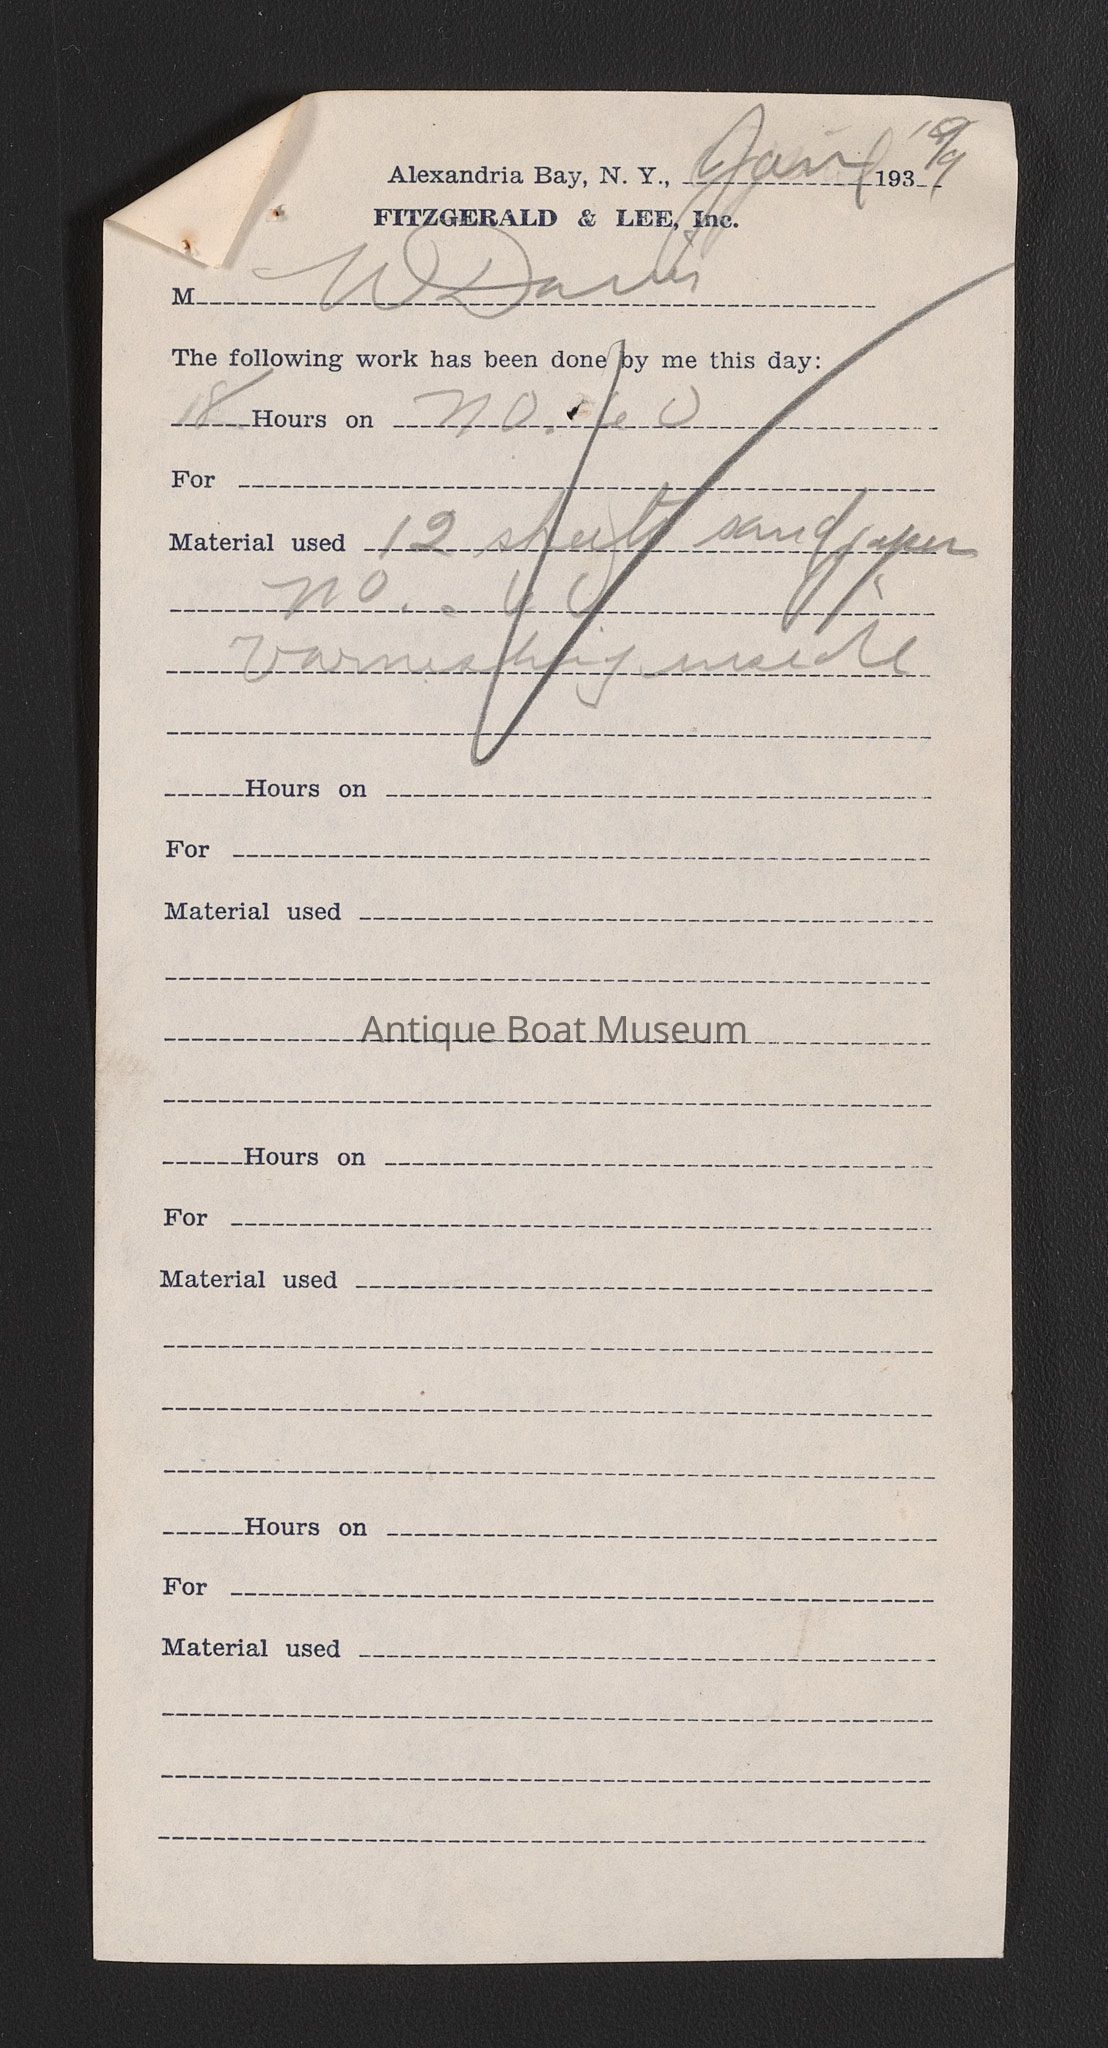 Alexandria Bay, N. Y., Jan 193
FITZGERALD & LEE, Inc.
M W Davis
The following work has been done by me this day:
18 Hours on NO.
For
Material used 12 sheets sand paper
no.
Varnishing inside
Hours on
For
Material used
Antique Boat Museum
Hours on
For
Material used
Hours on
For
Material used